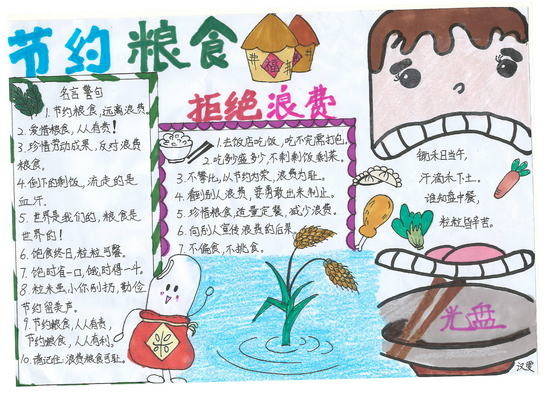 节约粮食
福
拒绝浪费
名言警句
1.节约粮食,远离浪费。
2.爱惜粮食,人人有责!
3.珍惜劳动成果,反对浪费
粮食。
4.倒下的剩饭,流走的是
血汗。
5.世界是我们的,粮食是
世界的!
6.饱食终日,粒粒可餐。
7.饱时省一口,饿时得一斗。
8.粒米虽小你别扔,勤俭
节约留美声。
9.节约粮食,人人有责,
节约粮食,人人有利。
10.请记住:浪费粮食可耻。
1.去饭店吃饭,吃不完需打包。
2.吃多少盛多少,不剩剩饭剩菜。
3.不攀比,以节约为荣,浪费为耻。
4.看到别人浪费,要勇敢出来制止。
5.珍惜粮食,适量定餐,减少浪费。
6.向别人宣传浪费的后果。
7.不偏食,不挑食。
锄禾日当午,
汗滴禾下土。
谁知盘中餐,
粒粒皆辛苦。
米
光盘